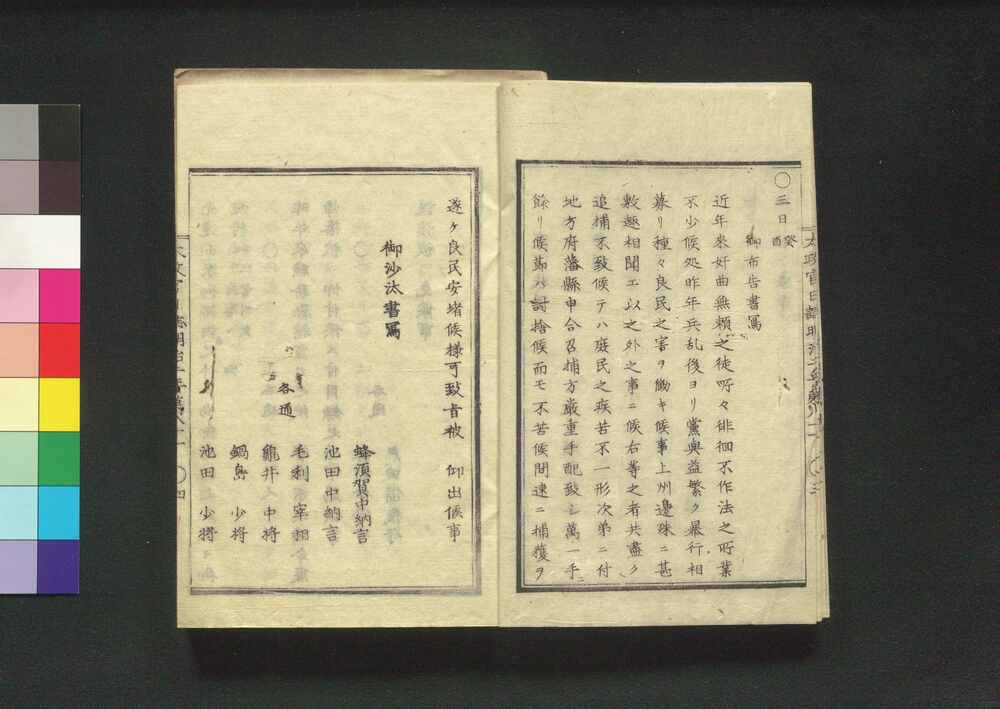 〇三日癸酉
御布告書寫
近年来奸曲無頼之徒所々徘徊不作法之所業
不少候処昨年兵乱後ヨリ黨與益繁ク暴行相
募リ種々良民之害ヲ働キ候事上州邊殊ニ甚
敷趣相聞エ以之外之事ニ候右等之者共盡ク
追捕不致候テハ庶民之疾苦不一形次第ニ付
地方府藩縣申合召捕方嚴重手配致シ萬一手
餘リ候節ハ討捨候而モ不苦候間速ニ捕獲ヲ
遂ケ良民安堵候様可致旨被 仰出候事
御沙汰書寫
蜂須賀中納言
池田中納言
毛利宰相
龜井中将
鍋島少将
池田少将
各通